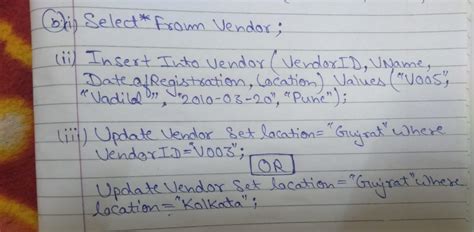 (b)(i) Select * From Vendor;
(ii) Insert Into Vendor (VendorID, VName,
Date of Registration, Location) Values ("V005",
"Vadilal", "2010-03-20", "Pune");
(iii) Update Vendor Set location = "Gujrat" Where
VendorID = "V003";
OR
Update Vendor Set location = "Gujrat" Where
location = "Kolkata";